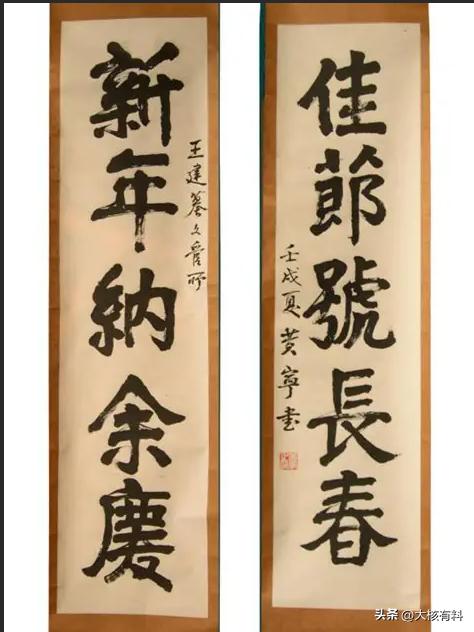 新年納余慶
王建墓文管所
佳節號長春
壬戌夏黄寧书
头条 @大核有料